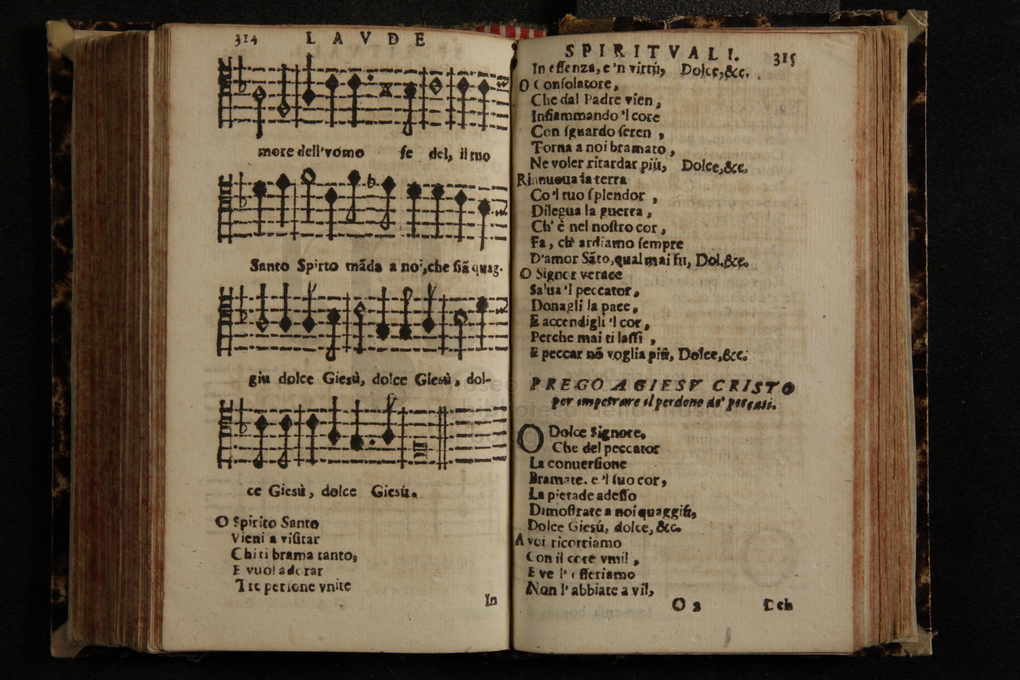 314 LAVDE
more dell'vomo fe del, il tuo
Santo Spirto mãda a noi, che siã quag-
giu dolce Giesù, dolce Giesù, dol-
ce Giesù, dolce Giesù.
O Spirito Santo
Vieni a visitar
Chi ti brama tanto,
E vuol adorar
Tre persone vnite
In
SPIRITVALI. 315
In essenza, e 'n virtù, Dolce,&c.
O Consolatore,
Che dal Padre vien,
Infiammando 'l core
Con sguardo seren,
Torna a noi bramato,
Ne voler ritardar più, Dolce,&c.
Rinnuoua la terra
Co 'l tuo splendor,
Dilegua la guerra,
Ch' è nel nostro cor,
Fa, ch' ardiamo sempre
D'amor Sãto, qual mai fu, Dol.&c.
O Signor verace
Salua 'l peccator,
Donagli la pace,
E accendigli 'l cor,
Perche mai ti lassi,
E peccar nõ voglia più, Dolce,&c.
PREGO A GIESV CRISTO
per impetrare il perdono de' peccati.
O Dolce Signore,
Che del peccator
La conuersione
Bramate, e 'l suo cor,
La pietade adesso
Dimostrate a noi quaggiù,
Dolce Giesú, dolce, &c.
A voi ricorriamo
Con il core vmil,
E ve l' offeriamo
Non l' abbiate a vil,
O 2 Deh